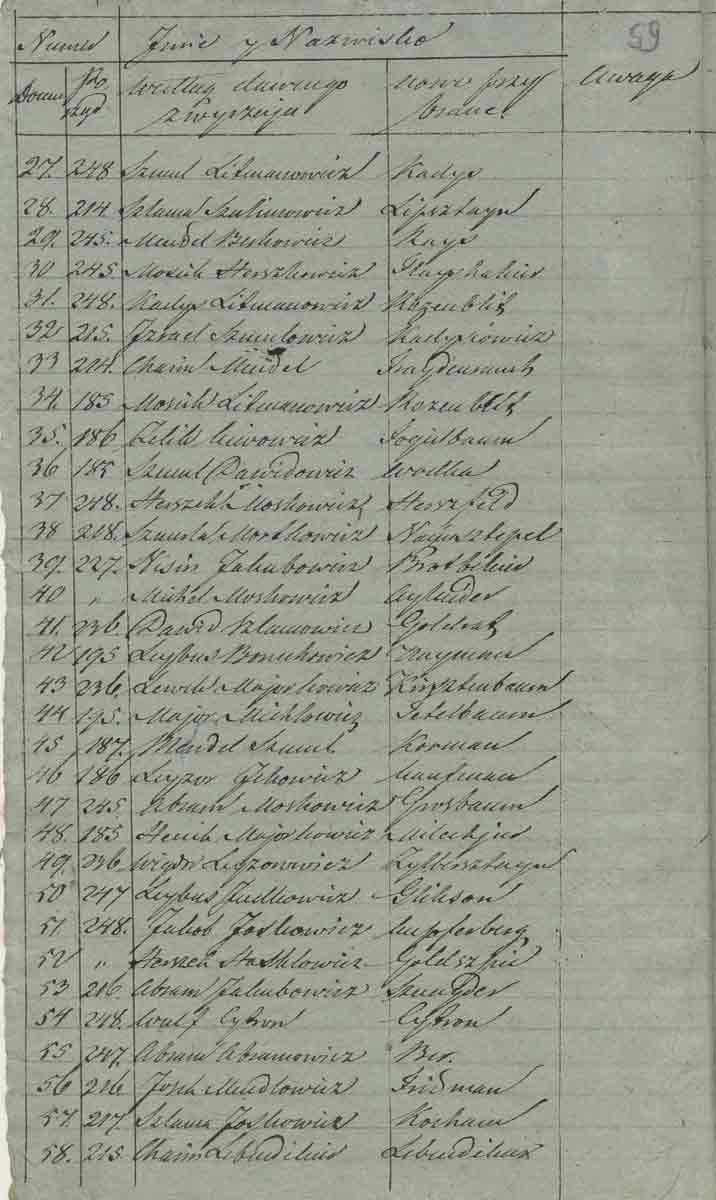 59
Numer Jmie y Nazwisko
Domu Po rząd według dawnego zwyczaju nowo przybrane Uwaga
27. 248 Szmul Litmanowicz Kadys
28. 214. Szlama Szulimowicz Lipsztayn
29. 245. Mendel Berkowicz Rays
30 245 Mosiek Herszkowicz
31. 248. Kadys Litmanowicz Rozenblit
32 215. Jzrael Szmulowicz Kadysiowicz
33 204. Chaim Mendel
34. 185 Mosiek Litmanowicz Rozenblit
35. 186 Zelik
36 185 Szmul Dawidowicz Wodka
37 248. Herszek Moskowicz Herszfeld
38 218. Szmerla Mortkowicz
39. 227. Nisin Jakubowicz
40 " Michel Moskowicz
41. 236. Dawid Szlamowicz
42 195 Leybus Boruchowicz Nayman
43 236. Lewek Majorkowicz Kirsztenbaum
44 195. Major Michlowicz Tetelbaum
45 187. Mendel Szmul Korman
46 186 Leyzor Jckowicz Kaufman
47 245. Abram Moskowicz Grosbaum
48. 185 Henich Majorkowicz
49. 236. Wigdor Leyzorowicz Zylbersztayn
50 247 Leybus Judkowicz Glikson
51 248. Jakob Joskowicz Kupferberg
52 " Herszek
53 216 Abram Jakubowicz Sznayder
54 248. Wulf Cytron Cytron
55 247. Abram Abramowicz Ber.
56 216 Josek Mendlowicz Fridman
57. 217. Szlama Joskowicz Kocham
58. 215 Chaim